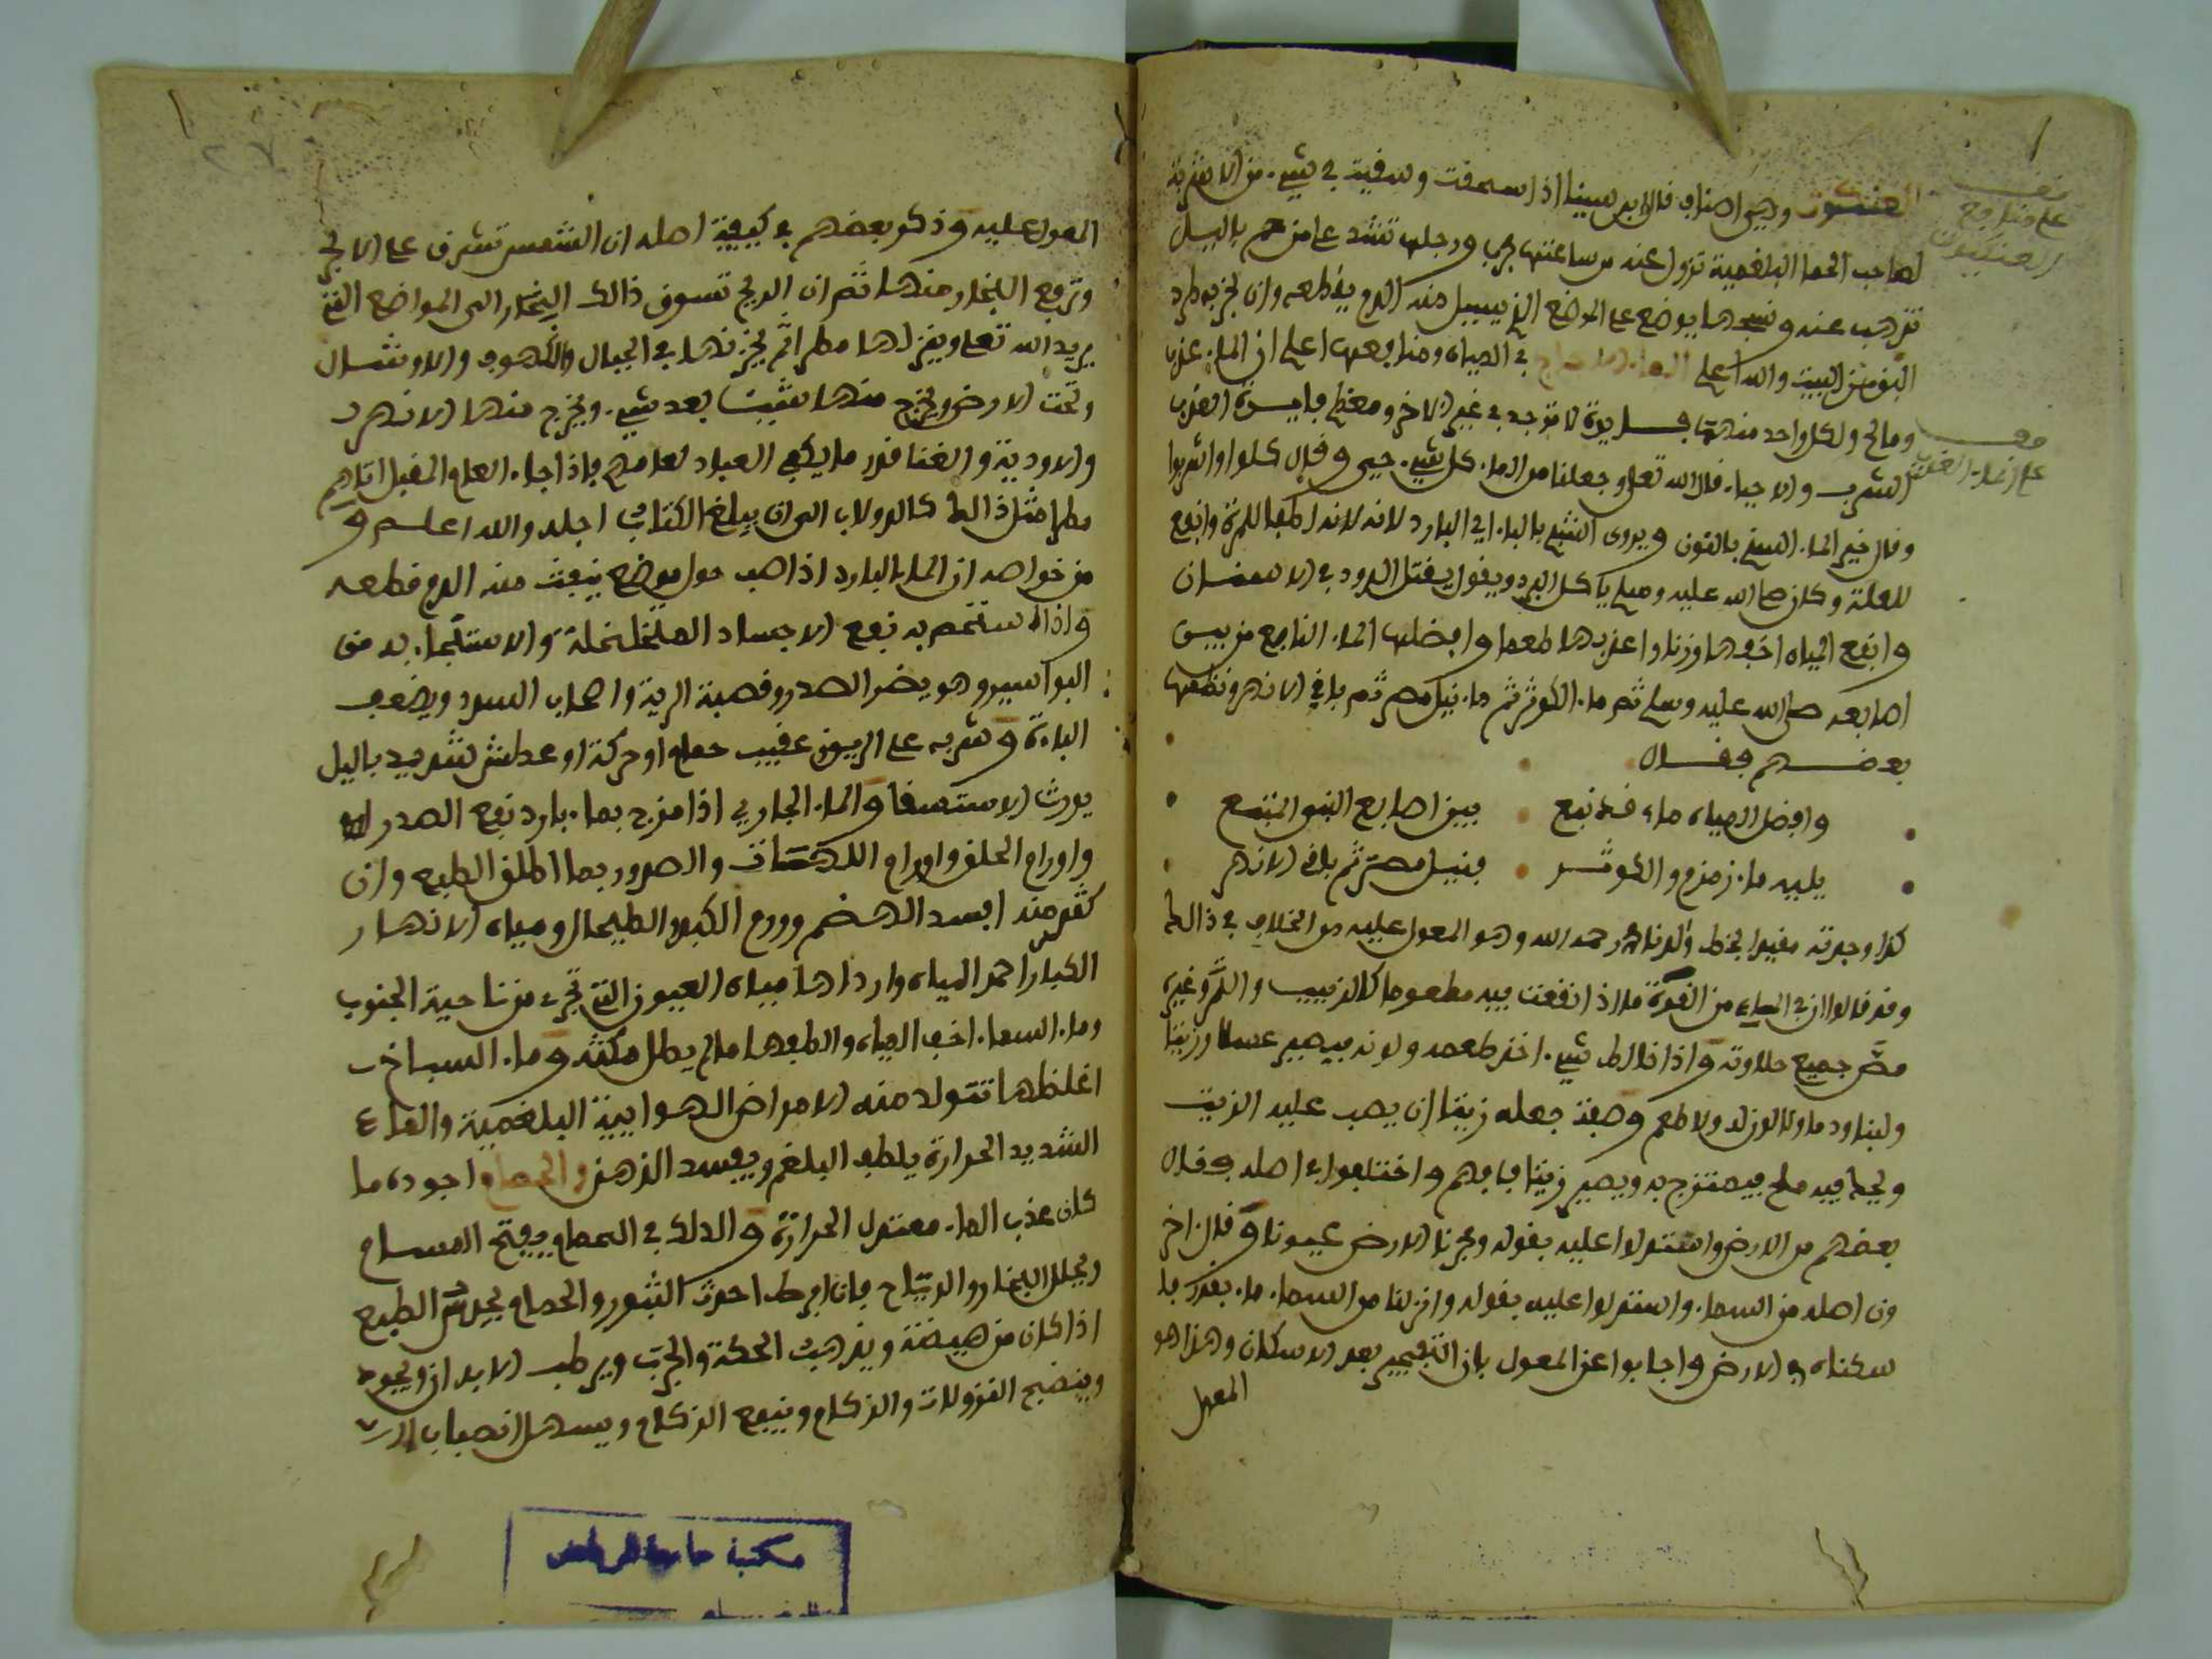 العنكبوت وهي اصناف قال ابن سينا اذا سحقت وسقيت في شيء من الاشربة
لصاحب الحما البلغمية تزول عنه من ساعتها جرب ورجلها تشد على من حم بالليل
تذهب عنه ونسجها يوضع على الموضع الذي يسيل منه الدم يقطعه وان بخر به طرد
البق من البيت والله اعلم في المياه ومنافعها اعلم ان الماء عذب
ومالح ولكل واحد منهما فايدة لا توجد في غير الاخر ومعظم فايدة العذب
الشرب والاحيا قال الله تعلى وجعلنا من الماء كل شيء حي وقال كلوا واشربوا
وقال خير الماء السنم بالنون ويروى الشبم بالباء اي البارد لانه لانه اطفا للمرة وانفع
للعلة وكان صلى الله عليه وسلم ياكل البرد ويقول يقتل الدود في الاسنان
وانفع المياه اخفها وزنا واعذبها طعما وافضلها الماء النابع من بين
اصابعه صلى الله عليه وسلم ثم ماء الكوثر ثم ماء نيل مصر ثم باقي الانهر ونظمها
بعضهم فقال
وافضل المياه ماء قد نبع بين اصابع النبي المتبع
يليه ماء زمزم والكوثر فنيل مصر ثم باقي الانهر
كذا وجدته مقيدا بخط والدنا رحمه الله وهو المعول عليه من الخلاف في ذالك
وقد قالوا ان في الماء من القوة ما اذا انقعت فيه مطعوما كالزبيب والتمر وغيره
مص جميع حلاوته واذا خالط شيء اخذ طعمه ولونه فيصير عسلا وزيتا
ولبنا ودما ولا لون له ولا طعم وصفة جعله زيتا ان يصب عليه الزيت
ويجعل فيه ملح فيمتزج به ويصير زيتا فافهم واختلفوا في اصله فقال
بعضهم من الارض واستدلوا عليه بقوله وفجرنا الارض عيونا وقال اخر
ون اصله من السماء واستدلوا عليه بقوله وانزلنا من السماء ماء بقدر فا
سكناه في الارض واجابوا عن المعول بان التفجير بعد الاسكان وهذا هو
المعول
على منافع
العنكبوت
المعول عليه وذكر بعضهم في كيفية اصله ان الشمس تشرف على الابحر
وترفع البخار منها ثم ان الريح تسوق ذالك البخار الى المواضع التي
يريد الله تعلى وينزلها مطرا ثم يخزنها في الجبال والكهوف والاوشال
وتحت الارض ويخرج منها شيئا بعد شيء ويخرج منها الانهر
والاودية والغنا قدر ما يكفي العباد لعامهم فاذا جاء العام المقبل اتاهم
مطرا مثل ذالك كالدولاب الى ان يبلغ الكتاب اجله والله اعلم و
من خواصه ان الماء البارد اذا صب حول موضع ينبعث منه الدم قطعه
واذا استحم به نفع الاجساد المتخلخلة والاستنجاء به من
البواسير وهو يضر الصدر وقصبة الرية واصحاب السدد ويضعف
الباءة وشربه على الريق عقيب حمام او حركة او عطش شديد باليل
يورث الاستسقا والماء الجاري اذا مزج بماء بارد نفع الصدر
واورام الحلق واورام اللهات والصدور بما اطلق الطبع وان
كثر منه افسد الهضم وورم الكبد والطيحال ومياه الانهار
الكبار احمد المياه وارداها مياه العيون التي تجري من ناحية الجنوب
وماء السماء اخف المياه والطفها مالم يطل مكثه وماء السباخ
اغلظها تتولد منه الامراض الهوايية البلغمية والماء
الشديد الحرارة يلطف البلغم ويفسد الذهن والحمام اجوده ما
كان عذب الماء معتدل الحرارة والدلك في الحمام يفتح المسام
ويحلل البخار والرياح فان افرط احدث البثور والحمام يحبس الطبع
اذا كان من هيضة ويذهب الحكة والجرب ويرطب الابدان ويجود
وينضج النزولات والزكام وينفع الزكام ويسهل انصباب
مكتبة جامعة الرياض